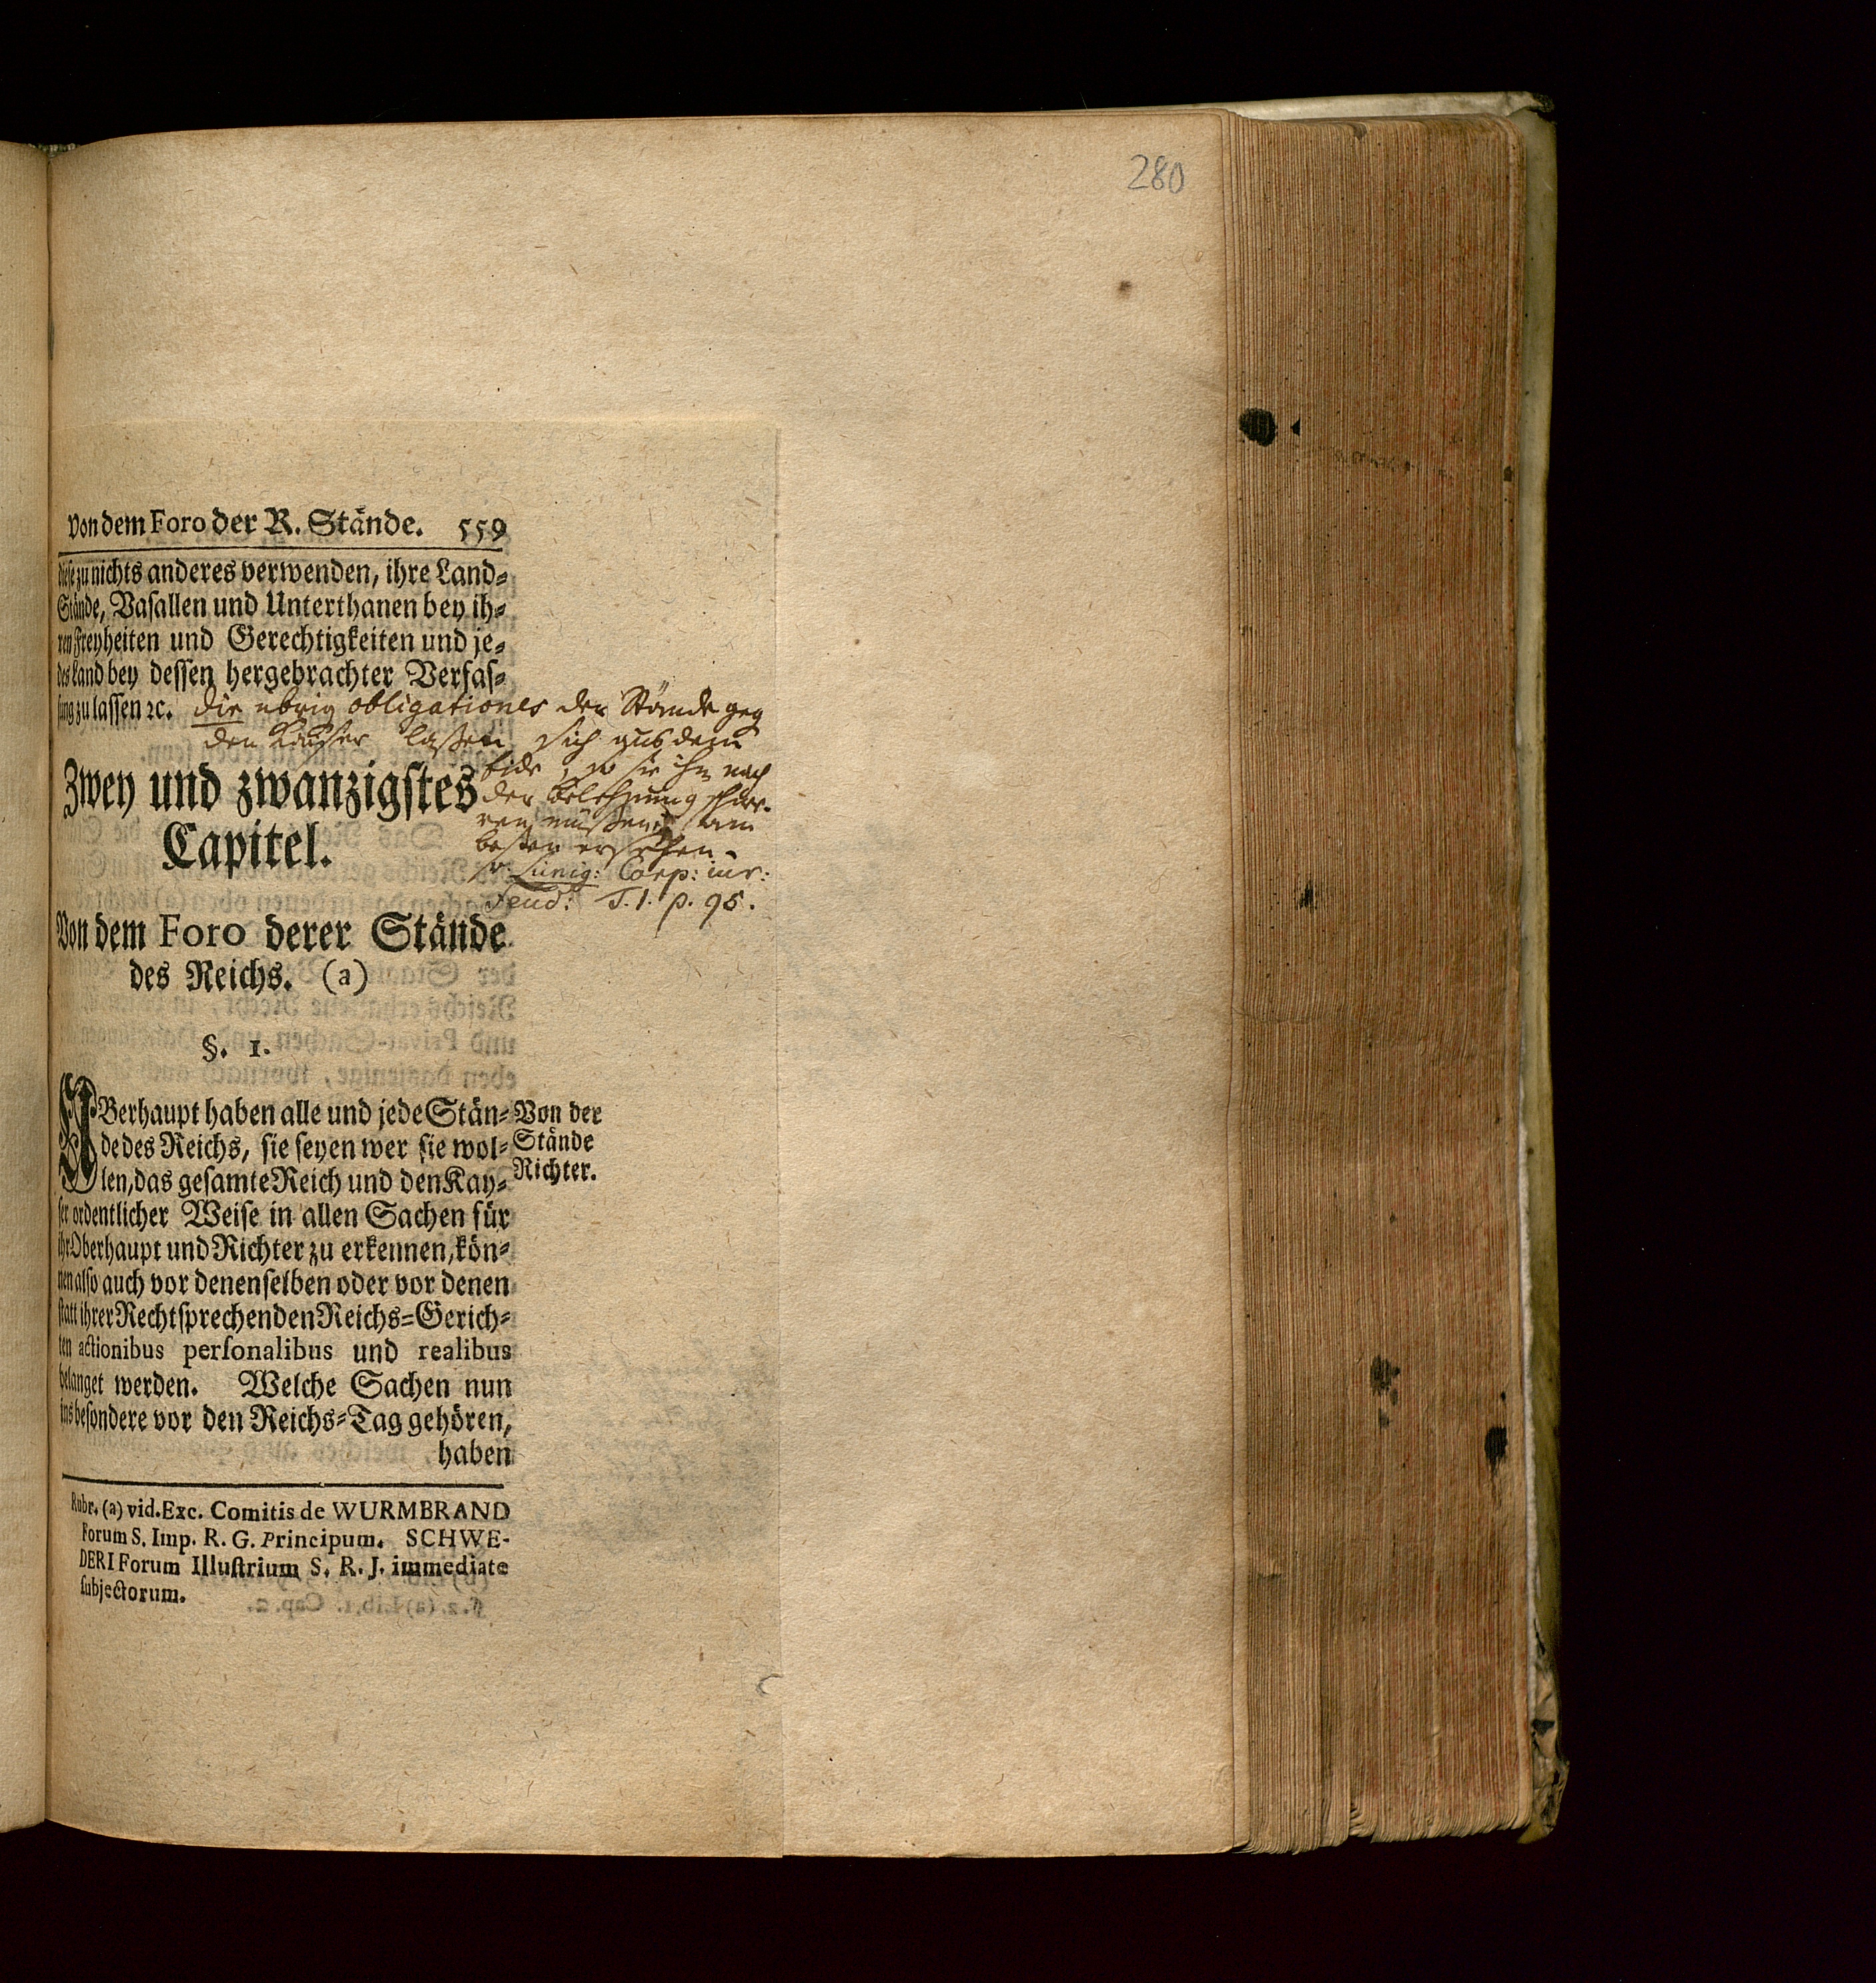 280
Von dem Foro der R. Stände. 559
diese zu nichts anderes verwenden, ihre Land-
Stände, Vasallen und Unterthanen bey ih-
ren Freyheiten und Gerechtigkeiten und je-
des Land bey dessen hergebrachter Verfas-
sung zu lassen ꝛc.
die ubrig obligationes der Stände geg
den Kayser laßen sich aus dem
Eide, so sie ihm nach
der Belehnung
müßen, am
besten ersehen.
v. Lünig: Corp: iur:
Feud: T. 1. p. 95.
Zwey und zwanzigstes
Capitel.
Von dem Foro derer Stände
des Reichs. (a)
§. 1.
UBerhaupt haben alle und jede Stän-
de des Reichs, sie seyen wer sie wol-
len, das gesamte Reich und den Kay-
ser ordentlicher Weise in allen Sachen für
ihr Oberhaupt und Richter zu erkennen, kön-
nen also auch vor denenselben oder vor denen
statt ihrer Rechtsprechenden Reichs-Gerich-
ten actionibus personalibus und realibus
belanget werden. Welche Sachen nun
ins besondere vor den Reichs-Tag gehören,
haben
Von der
Stände
Richter.
Rubr. (a) vid. Exc. Comitis de WURMBRAND
Forum S. Imp. R. G. Principum. SCHWE-
DERI Forum Illustrium S. R. J. immediate
subjectorum.